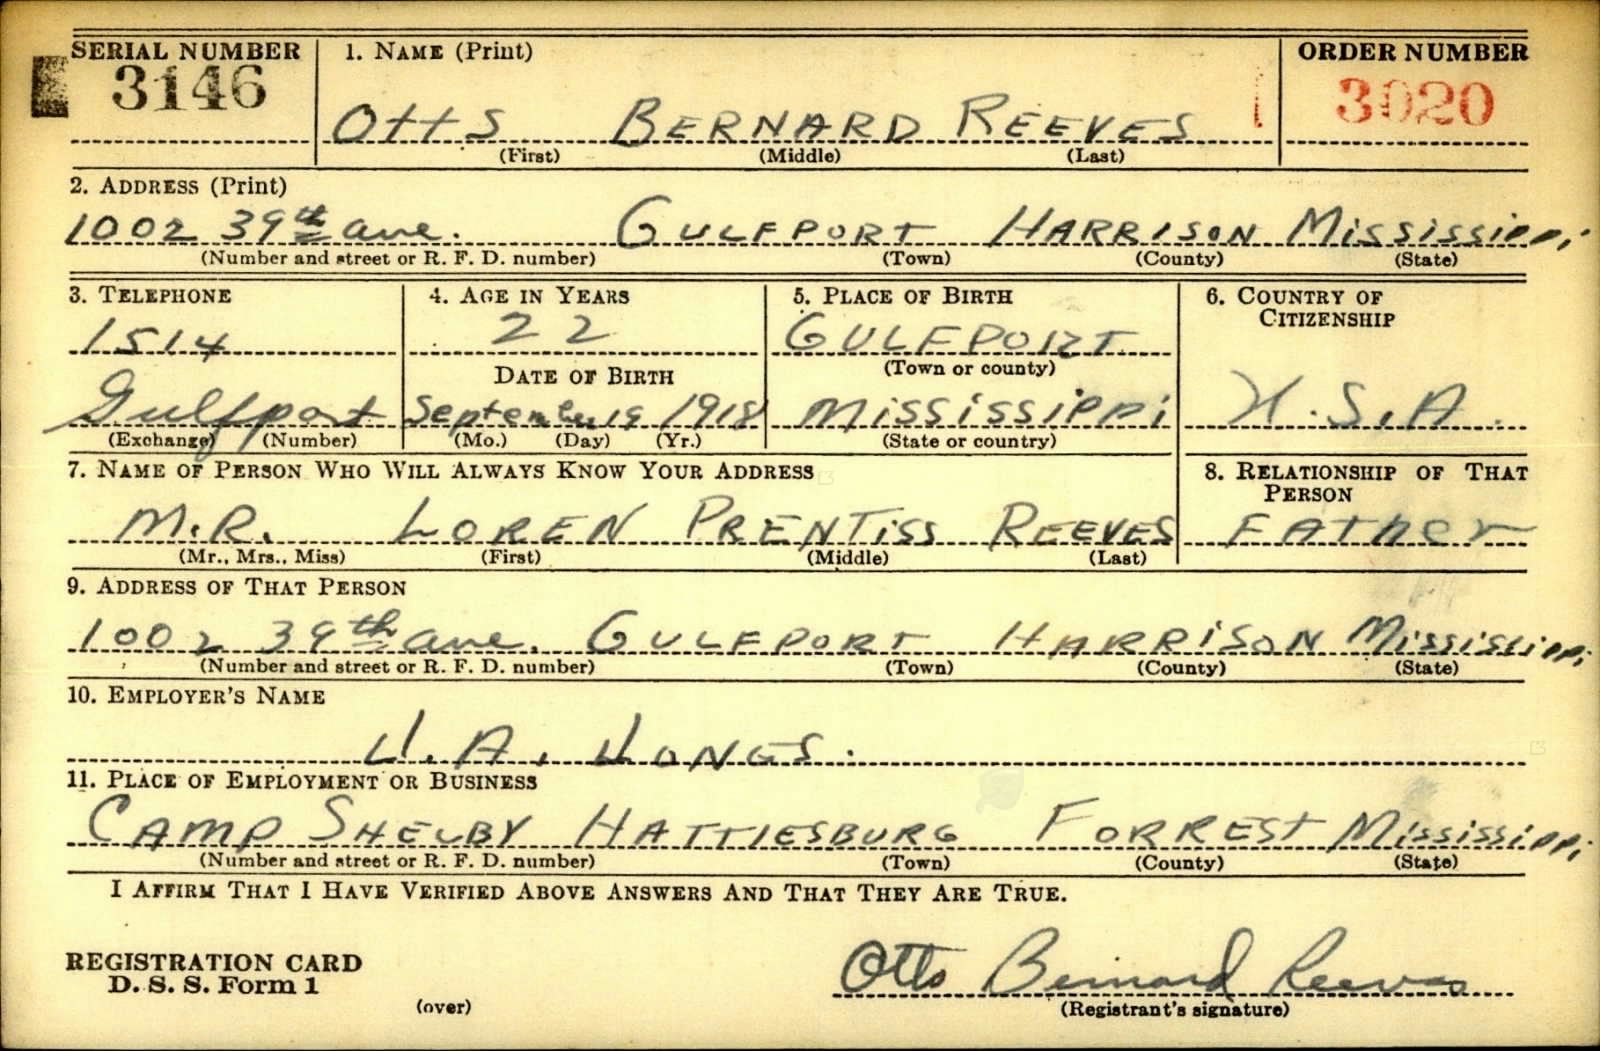 SERIAL NUMBER 1. NAME (Print) ORDER NUMBER
3146 3020
Otts BERNARD REEVES
(First) (Middle) (Last)
2. ADDRESS (Print)
1002 39th ave. GULFPORT HARRISON MISSISSIPPI
(Number and street or R. F. D. number) (Town) (County) (State)
3. TELEPHONE 4. AGE IN YEARS 5. PLACE OF BIRTH 6. COUNTRY OF
CITIZENSHIP
1514 22 GULFPORT
DATE OF BIRTH (Town or county)
Gulfport September 19 1918 MISSISSIPPI U.S.A.
(Exchange) (Number) (Mo.) (Day) (Yr.) (State or country)
7. NAME OF PERSON WHO WILL ALWAYS KNOW YOUR ADDRESS 8. RELATIONSHIP OF THAT
PERSON
M.R. LOREN PRENTISS REEVES FATher
(Mr., Mrs., Miss) (First) (Middle) (Last)
9. ADDRESS OF THAT PERSON
1002 39th ave. GULFPORT HARRISON MISSISSIPPI
(Number and street or R. F. D. number) (Town) (County) (State)
10. EMPLOYER'S NAME
A.
11. PLACE OF EMPLOYMENT OR BUSINESS
CAMP SHELBY HATTIESBURG FORREST MISSISSIPPI
(Number and street or R. F. D. number) (Town) (County) (State)
I AFFIRM THAT I HAVE VERIFIED ABOVE ANSWERS AND THAT THEY ARE TRUE.
REGISTRATION CARD
D. S. S. Form 1
(over)
Otto Bernard Reeves
(Registrant's signature)